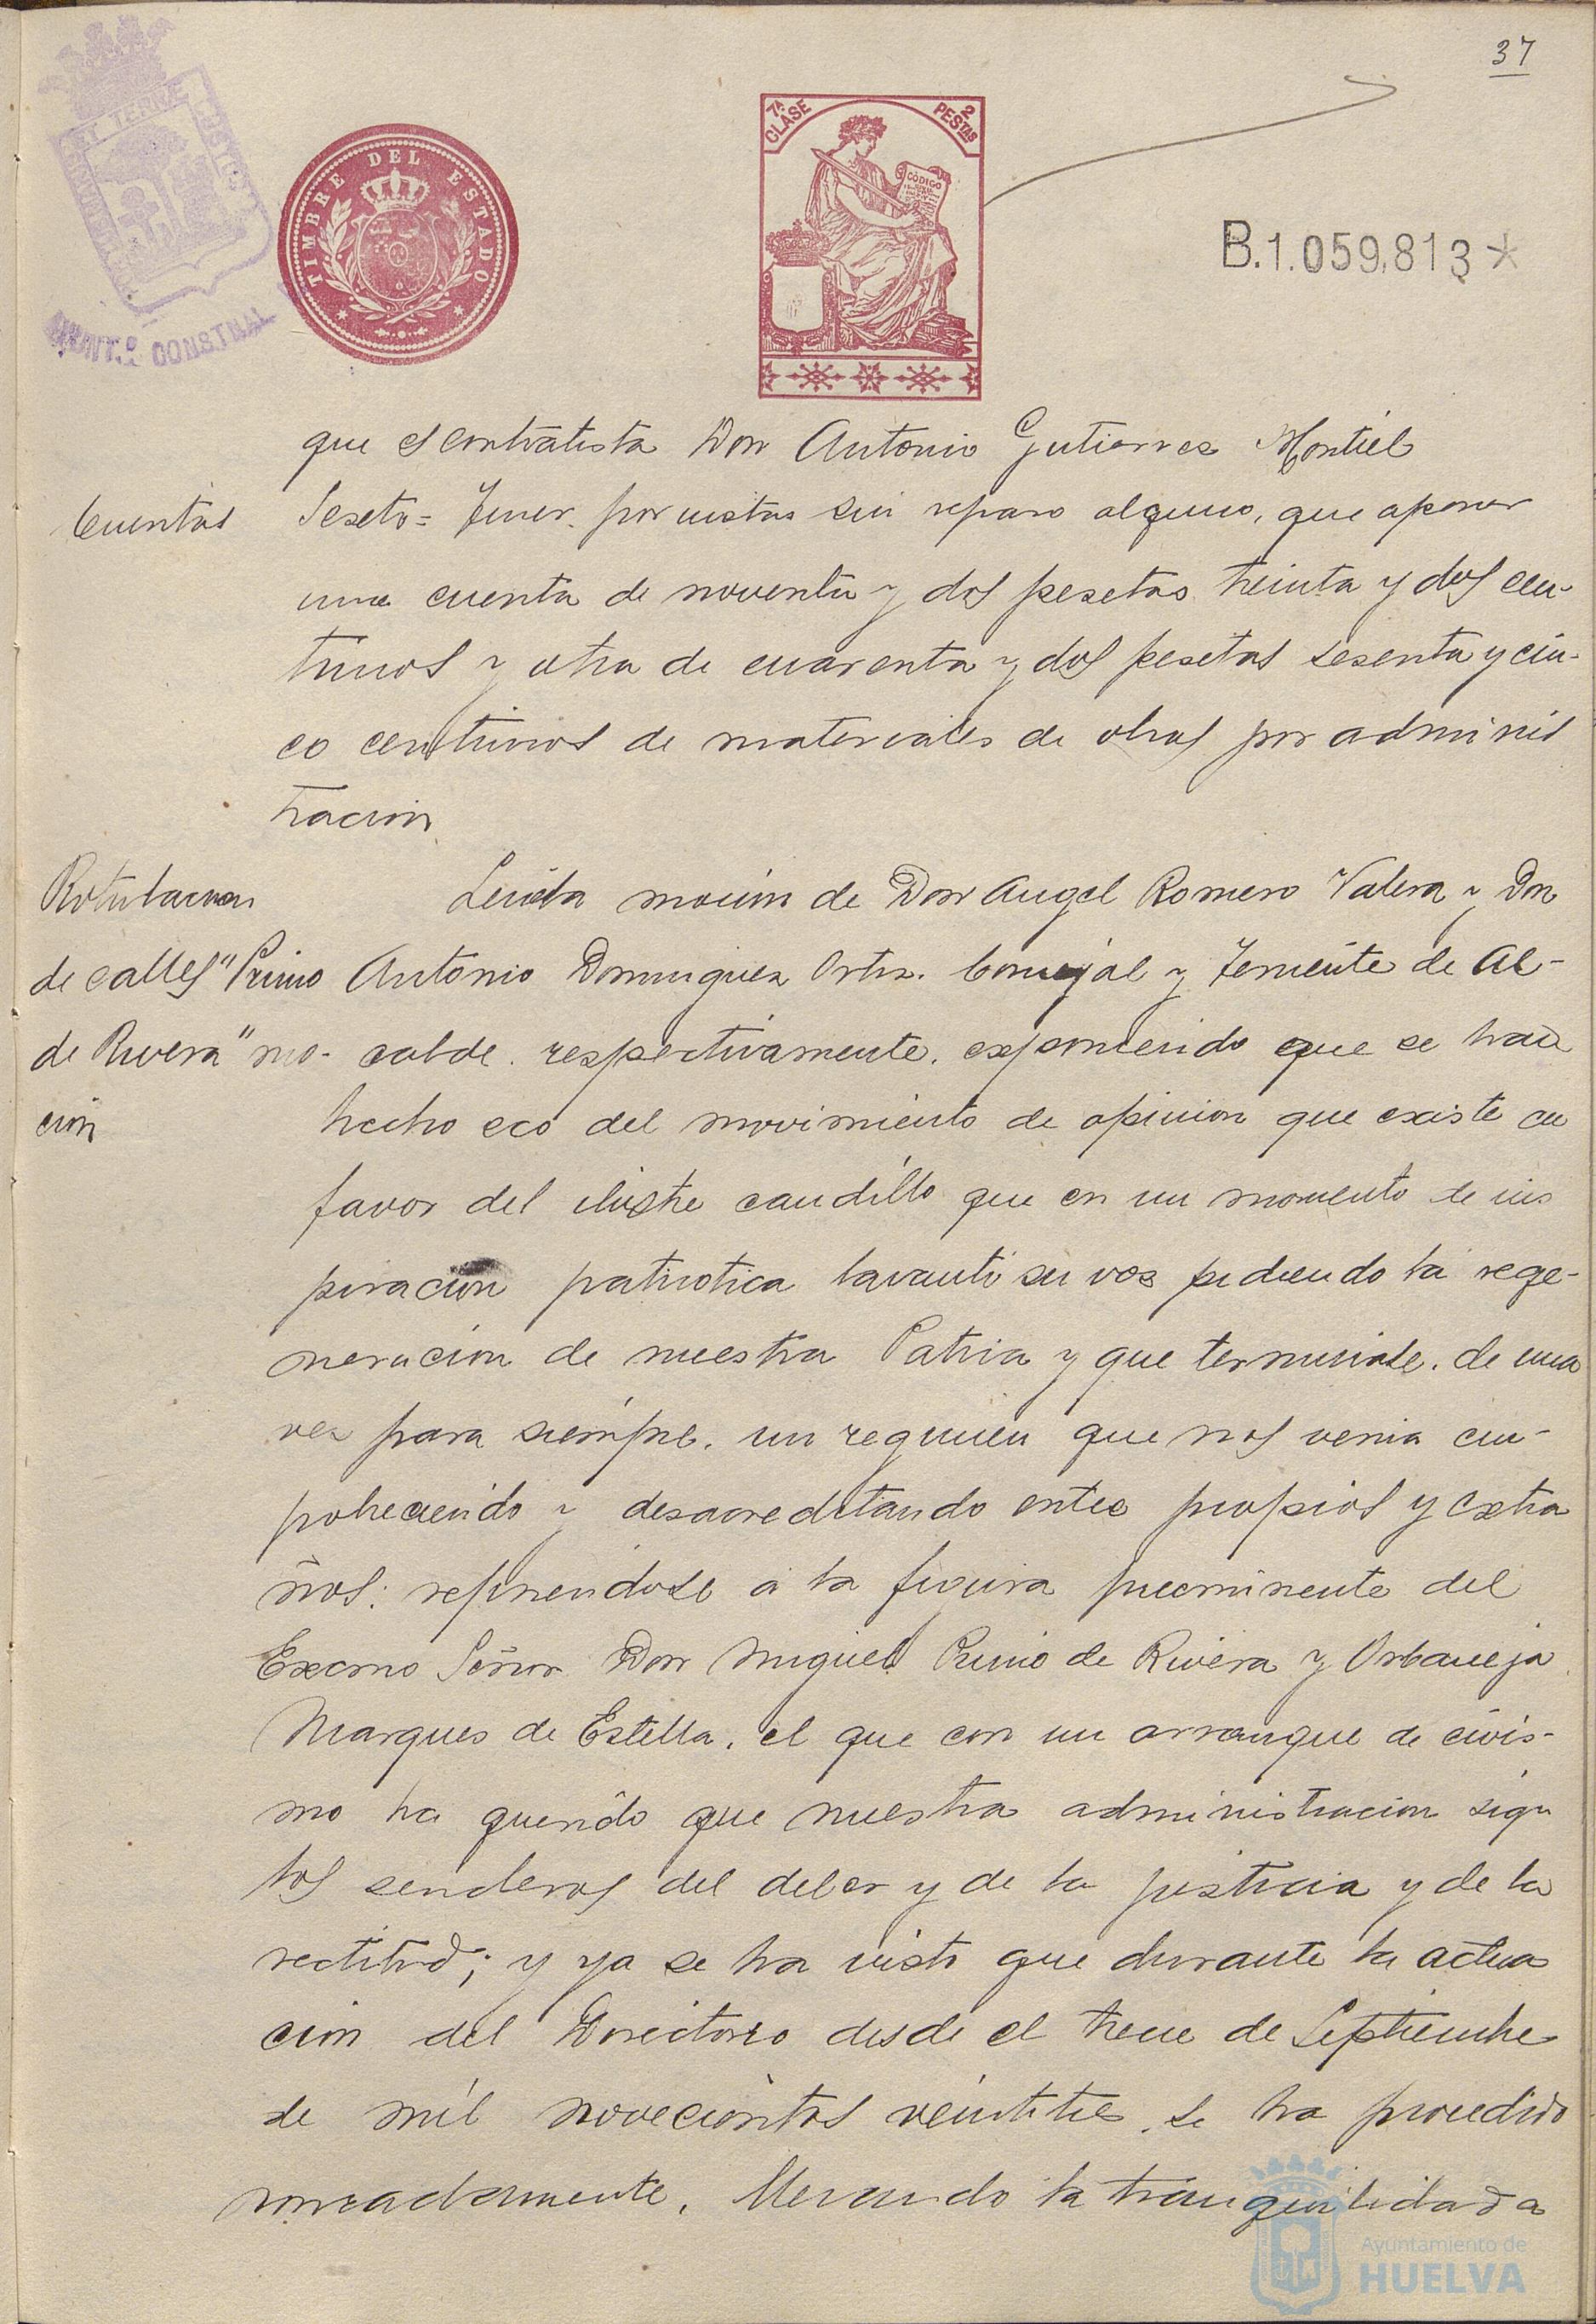 37
PORTUS
ET TERRE
AYUNT.º CONSTNAL
TIMBRE DEL ESTADO
7ª CLASE
2 PESTAS
CÓDIGO
B.1.059.813*
que el contratista Don Antonio Gutierrez Montiel
Cuentas
Sesto = Tener por vistas sin reparo alguno, que aparar
una cuenta de noventa y dos pesetas treinta y dos cen-
timos y otra de cuarenta y dos pesetas sesenta y cin-
co centimos de materiales de obras por adminis
tracion
Rotulacion
de calles "Primo
de Rivera" mo-
ción
Leida mocion de Don Angel Romero Valera y Don
Antonio Dominguez Ortiz. Concejal y Teniente de Al-
calde. respectivamente. exponiendo que se han
hecho eco del movimiento de opinion que existe en
favor del ilustre caudillo que en un momento de ins
piracion patriotica lavantó su voz pidiendo la rege-
neracion de nuestra Patria y que terminase. de una
vez para siempre. un regimen que nos venia em-
pobreciendo y desacreditando entre propios y extra
ños: refiriendose a la figura preeminente del
Excmo Señor Don Miguel Primo de Rivera y Orbaneja
Marques de Estella. el que con un arranque de civis-
mo ha querido que nuestra administracion siga
los senderos del deber y de la justicia y de la
rectitud; y ya se ha visto que durante la actua
cion del Directorio desde el trece de Septiembre
de mil novecientos veintitres se ha procedido
honradamente. llevando la tranquilidad a
Ayuntamiento de
HUELVA